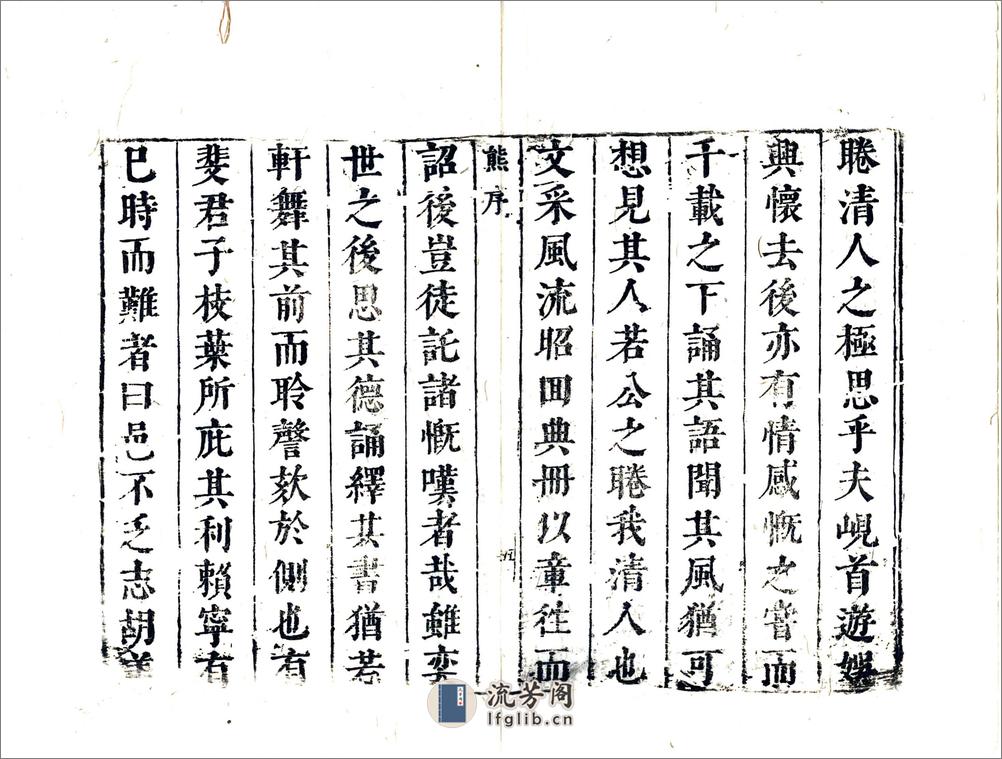 睠清人之極思乎夫峴首遊娛
興懷去後亦有情感慨之嘗而
千載之下誦其語聞其風猶可
想見其人若公之睠我清人也
文采風流昭回典冊以章徃而
熊序
五
詔後豈徒託諸慨嘆者哉雖奕
世之後思其德誦繹其書猶若
軒舞其前而聆謦欬於側也有
斐君子枝葉所庇其利賴寧有
已時而難者曰邑不乏志胡
流芳阁
lfglib.cn